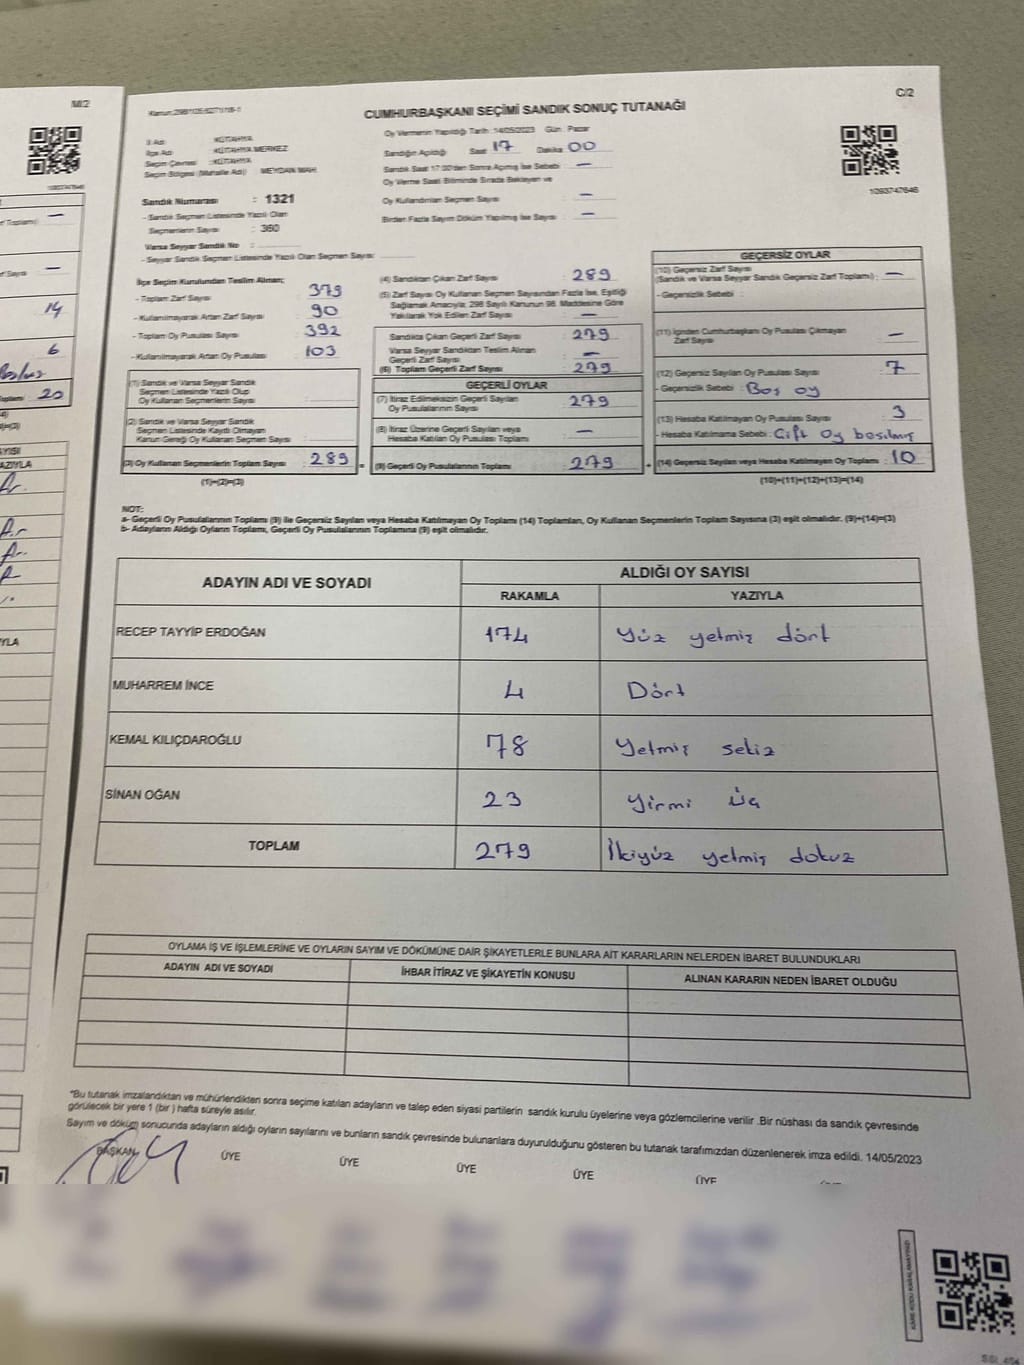 M/2
C/2
CUMHURBAŞKANI SEÇİMİ SANDIK SONUÇ TUTANAĞI
1093747646
İl Adı : KÜTAHYA
İlçe Adı : KÜTAHYA MERKEZ
Seçim Çevresi : KÜTAHYA
Seçim Bölgesi (Mahalle Adı) : MEYDAN MAH.
Sandık Numarası : 1321
- Sandık Seçmen Listesinde Yazılı Olan
Seçmenlerin Sayısı : 360
Varsa Seyyar Sandık No :
- Seyyar Sandık Seçmen Listesinde Yazılı Olan Seçmen Sayısı:
Oy Vermenin Yapıldığı Tarih : 14/05/2023 Gün : Pazar
Sandığın Açıldığı Saat 17 Dakika 00
Sandık Saat 17:00'den Sonra Açılmış İse Sebebi : —
Oy Verme Saati Bitiminde Sırada Bekleyen ve
Oy Kullandırılan Seçmen Sayısı : —
Birden Fazla Sayım Döküm Yapılmış İse Sayısı : —
İlçe Seçim Kurulundan Teslim Alınan;
- Toplam Zarf Sayısı : 379
- Kullanılmayarak Artan Zarf Sayısı : 90
- Toplam Oy Pusulası Sayısı : 392
- Kullanılmayarak Artan Oy Pusulası : 103
(1) Sandık ve Varsa Seyyar Sandık
Seçmen Listesinde Yazılı Olup
Oy Kullanan Seçmenlerin Sayısı :
(2) Sandık ve Varsa Seyyar Sandık
Seçmen Listesinde Kayıtlı Olmayan
Kanun Gereği Oy Kullanan Seçmen Sayısı :
(3) Oy Kullanan Seçmenlerin Toplam Sayısı : 289
(1)+(2)=(3)
(4) Sandıktan Çıkan Zarf Sayısı : 289
(5) Zarf Sayısı Oy Kullanan Seçmen Sayısından Fazla İse, Eşitliği
Sağlamak Amacıyla; 298 Sayılı Kanunun 98. Maddesine Göre
Yakılarak Yok Edilen Zarf Sayısı : —
Sandıkta Çıkan Geçerli Zarf Sayısı : 279
Varsa Seyyar Sandıktan Teslim Alınan
Geçerli Zarf Sayısı : —
(6) Toplam Geçerli Zarf Sayısı : 279
GEÇERLİ OYLAR
(7) İtiraz Edilmeksizin Geçerli Sayılan
Oy Pusulalarının Sayısı : 279
(8) İtiraz Üzerine Geçerli Sayılan veya
Hesaba Katılan Oy Pusulası Toplamı : —
(9) Geçerli Oy Pusulalarının Toplamı : 279
+
GEÇERSİZ OYLAR
(10) Geçersiz Zarf Sayısı
(Sandık ve Varsa Seyyar Sandık Geçersiz Zarf Toplamı) : —
- Geçersizlik Sebebi :
(11) İçinden Cumhurbaşkanı Oy Pusulası Çıkmayan
Zarf Sayısı : —
(12) Geçersiz Sayılan Oy Pusulası Sayısı : 7
- Geçersizlik Sebebi : Boş oy
(13) Hesaba Katılmayan Oy Pusulası Sayısı : 3
- Hesaba Katılmama Sebebi : Çift oy basılmış
(14) Geçersiz Sayılan veya Hesaba Katılmayan Oy Toplamı : 10
(10)+(11)+(12)+(13)=(14)
NOT:
a- Geçerli Oy Pusulalarının Toplamı (9) ile Geçersiz Sayılan veya Hesaba Katılmayan Oy Toplamı (14) Toplamları, Oy Kullanan Seçmenlerin Toplam Sayısına (3) eşit olmalıdır. (9)+(14)=(3)
b- Adayların Aldığı Oyların Toplamı, Geçerli Oy Pusulalarının Toplamına (9) eşit olmalıdır.
ADAYIN ADI VE SOYADI
ALDIĞI OY SAYISI
RAKAMLA YAZIYLA
RECEP TAYYİP ERDOĞAN 174 Yüz yetmiş dört
MUHARREM İNCE 4 Dört
KEMAL KILIÇDAROĞLU 78 Yetmiş sekiz
SİNAN OĞAN 23 Yirmi üç
TOPLAM 279 İkiyüz yetmiş dokuz
OYLAMA İŞ VE İŞLEMLERİNE VE OYLARIN SAYIM VE DÖKÜMÜNE DAİR ŞİKAYETLERLE BUNLARA AİT KARARLARIN NELERDEN İBARET BULUNDUKLARI
ADAYIN ADI VE SOYADI İHBAR İTİRAZ VE ŞİKAYETİN KONUSU ALINAN KARARIN NEDEN İBARET OLDUĞU
*Bu tutanak imzalandıktan ve mühürlendikten sonra seçime katılan adayların ve talep eden siyasi partilerin sandık kurulu üyelerine veya gözlemcilerine verilir .Bir nüshası da sandık çevresinde
görülecek bir yere 1 (bir ) hafta süreyle asılır.
Sayım ve döküm sonucunda adayların aldığı oyların sayılarını ve bunların sandık çevresinde bulunanlara duyurulduğunu gösteren bu tutanak tarafımızdan düzenlenerek imza edildi. 14/05/2023
BAŞKAN ÜYE ÜYE ÜYE ÜYE ÜYE
14
6
20
YAZIYLA